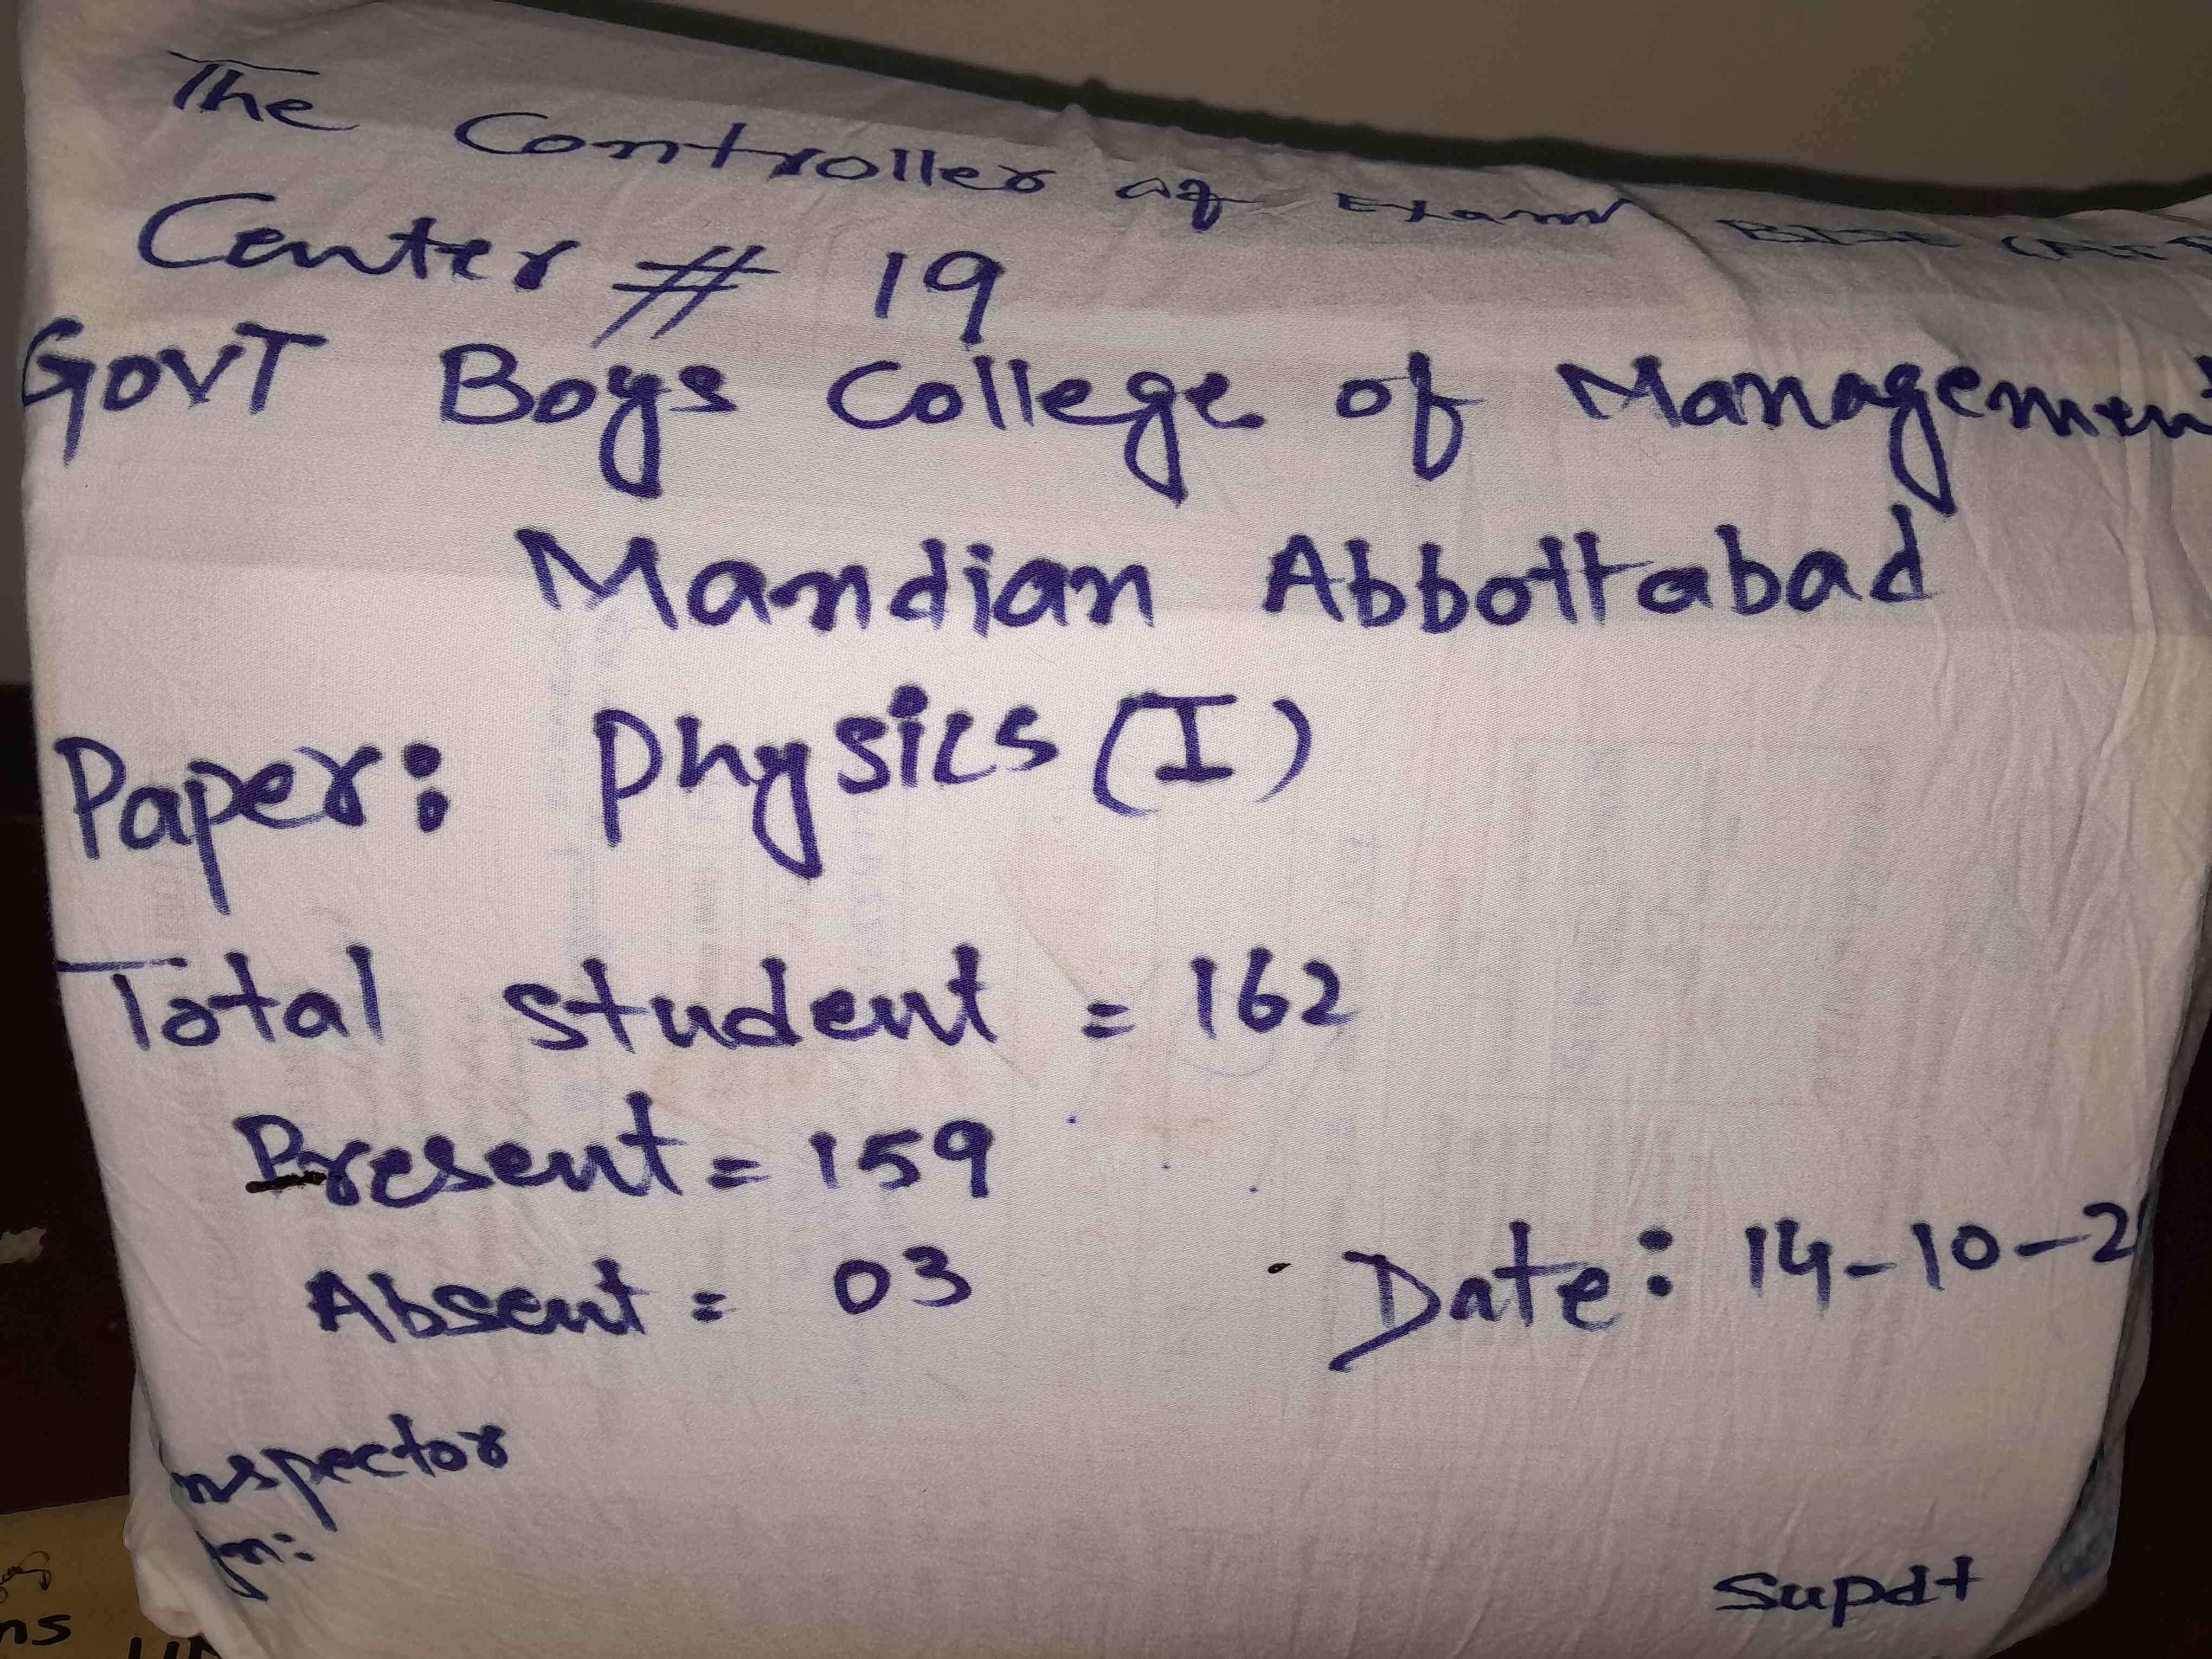 The Controller of Exam BISE
Center # 19
GOVT Boys College of Managemen
Mandian Abbottabad
Paper: Physics (I)
Total student = 162
Present = 159
Absent = 03
Date: 14-10-2
nspector
gn:
Supdt
ns